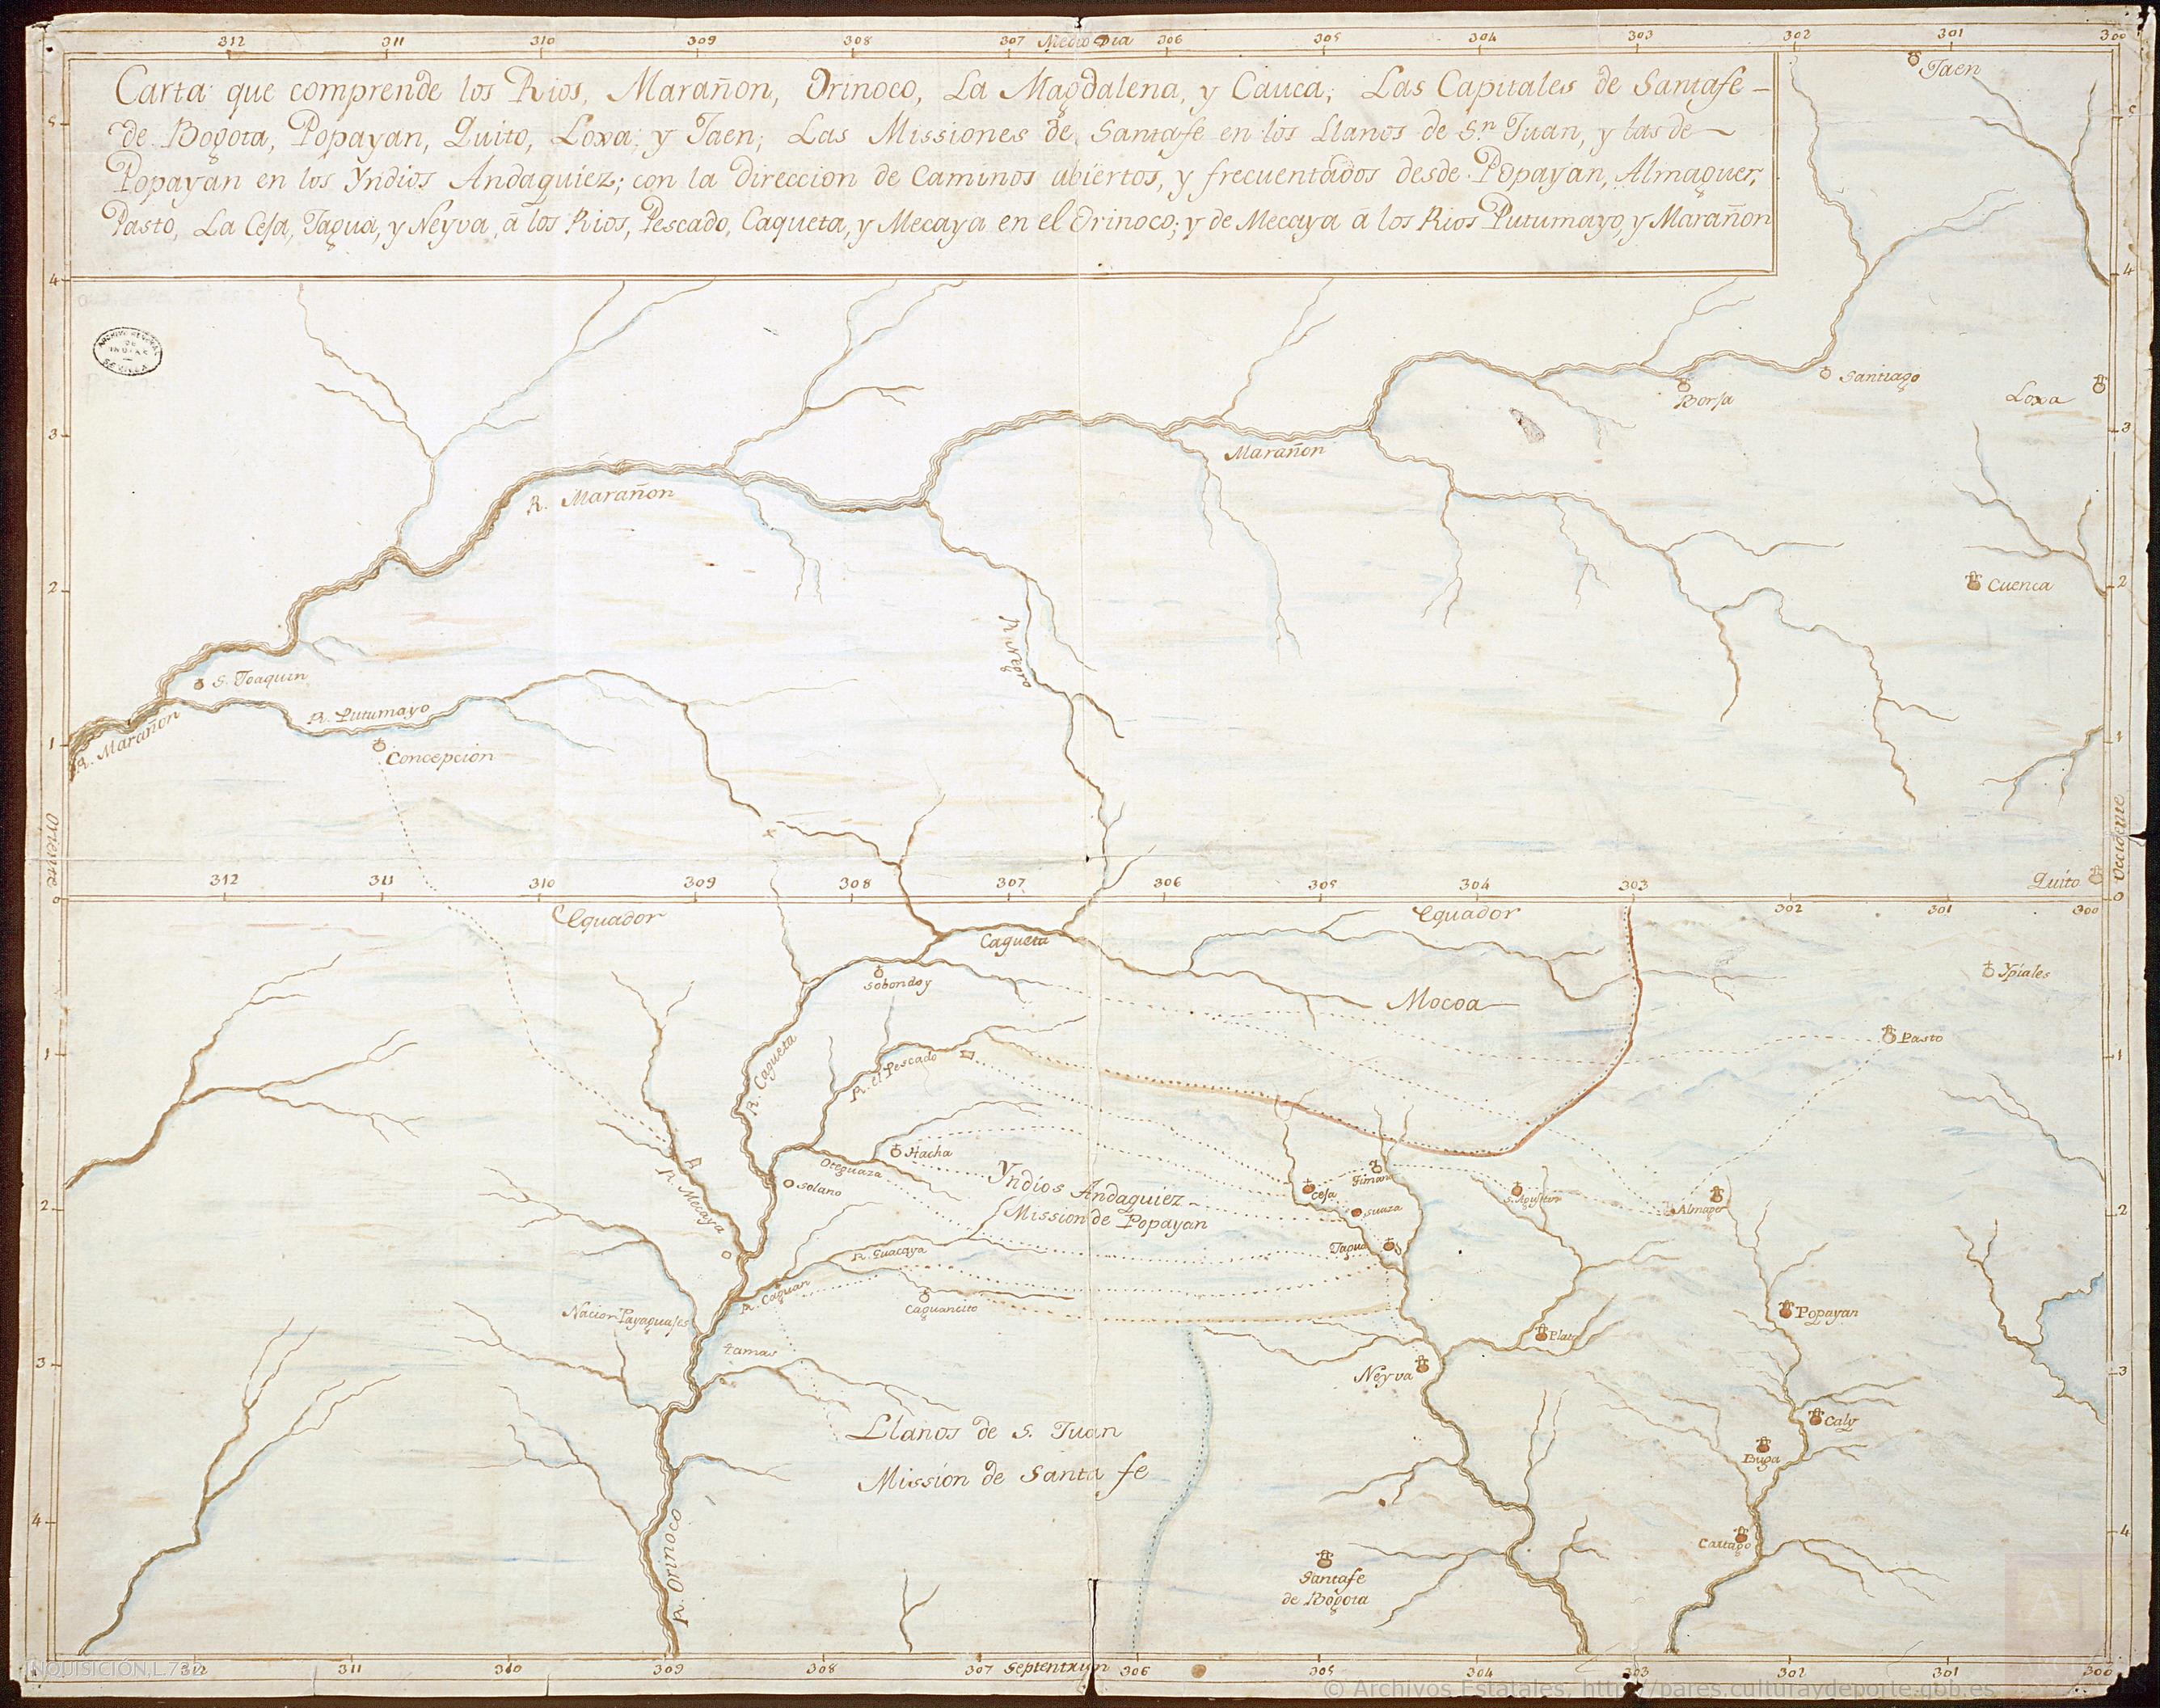 312 311 310 309 308 307 Medio Dia 306 305 304 303 302 301 300
Carta que comprende los Rios, Marañon, Orinoco, La Magdalena, y Cauca; Las Capitales de Santafe -
de Bogota, Popayan, Quito, Loxa, y Jaen; Las Missiones de Santafe en los Llanos de Sn Juan, y las de
Popayan en los Yndios Andaquiez; con la direccion de Caminos abiertos, y frecuentados desde Popayan, Almaguer,
Pasto, La Ceja, Tagua, y Neyva, à los Rios, Pescado, Caqueta, y Mecaya en el Orinoco; y de Mecaya à los Rios Putumayo, y Marañon
Jaen
5
5
4
4
ARCHIVO GENERAL
DE
INDIAS
SEVILLA
Santiago
Borja
Loxa
3
3
Marañon
R. Marañon
2
2
Cuenca
R. Negro
S. Joaquin
R. Putumayo
R. Marañon
Concepcion
1
1
Oriente
Occidente
Quito
312 311 310 309 308 307 306 305 304 303 302 301 300
0
0
Equador
Equador
Caqueta
Sobondoy
Mocoa
Ypiales
R. Caqueta
R. el Pescado
Pasto
1
1
Hacha
Oteguaza
Solano
R. Mecaya
Yndios Andaquiez -
Mission de Popayan
Timana
Ceja
Suaza
S. Agustin
Almager
2
2
Tagua
R. Guacaya
R. Caguan
Caguancito
Nacion Payaguajes
Tamas
Plata
Popayan
3
3
Neyva
Llanos de S. Juan
Mission de Santa fe
Caly
Buga
4
4
R. Orinoco
Cartago
Santafe
de Bogota
312 311 310 309 308 307 Septentrion 306 305 304 303 302 301 300
INQUISICIÓN,L.732
© Archivos Estatales, http://pares.culturaydeporte.gob.es